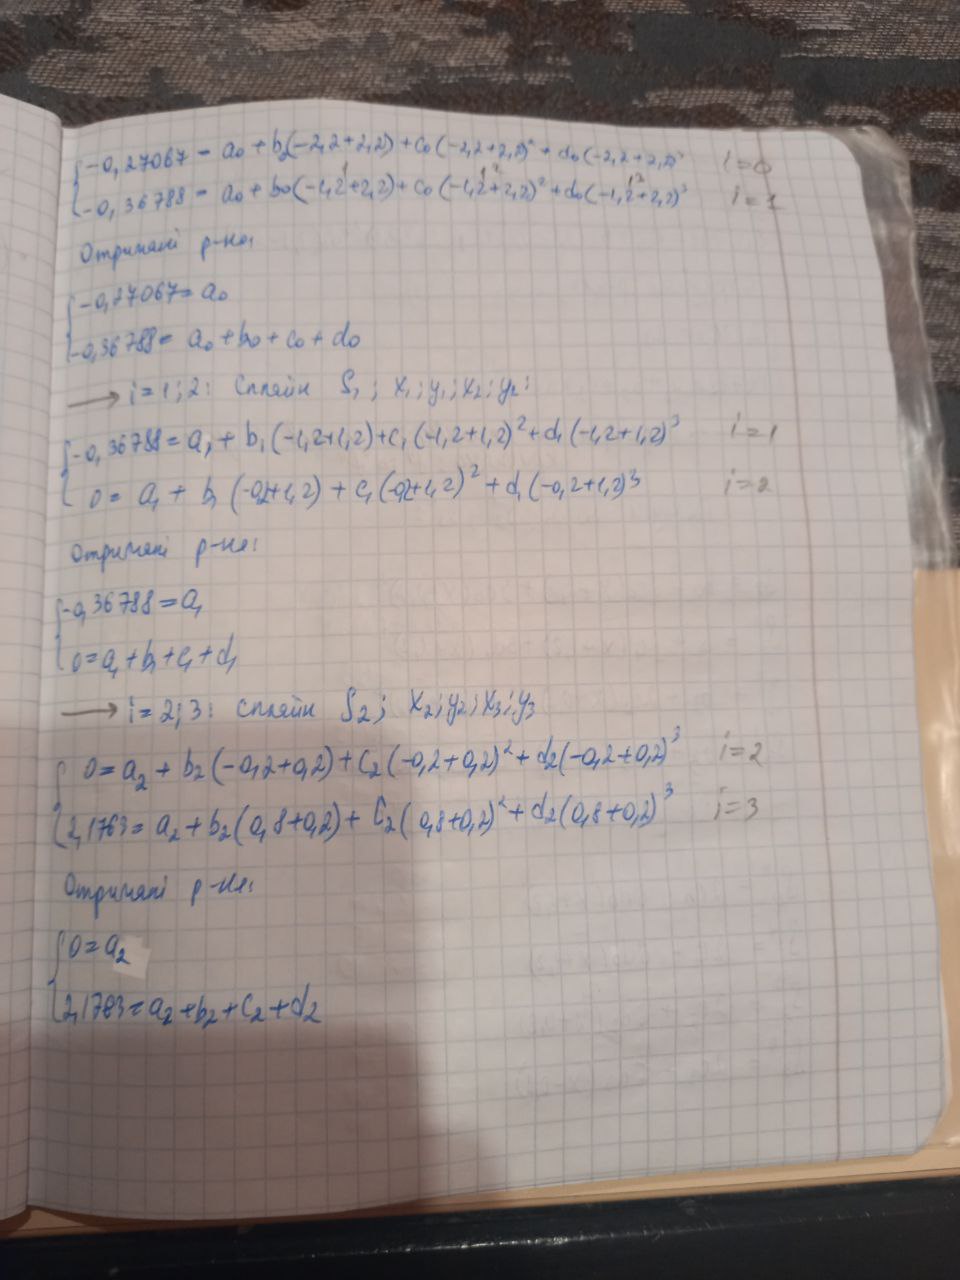 -0,27067 = a0 + b2(-2,2+2,2) + c0(-2,2+2,2)² + d0(-2,2+2,2)³ i=0
-0,36788 = a0 + b0(-1,2+2,2) + c0(-1,2+2,2)² + d0(-1,2+2,2)³ i=1
Отримані р-ня:
-0,27067 = a0
-0,36788 = a0 + b0 + c0 + d0
→ i=1;2: Сплайн S1; x1; y1; x2; y2:
-0,36788 = a1 + b1(-1,2+1,2) + c1(-1,2+1,2)² + d1(-1,2+1,2)³ i=1
0 = a1 + b1(-0,2+1,2) + c1(-0,2+1,2)² + d1(-0,2+1,2)³ i=2
Отримані р-ня:
-0,36788 = a1
0 = a1 + b1 + c1 + d1
→ i=2;3: Сплайн S2; x2; y2; x3; y3
0 = a2 + b2(-0,2+0,2) + c2(-0,2+0,2)² + d2(-0,2+0,2)³ i=2
2,1763 = a2 + b2(0,8+0,2) + c2(0,8+0,2)² + d2(0,8+0,2)³ i=3
Отримані р-ня:
0 = a2
2,1783 = a2 + b2 + c2 + d2